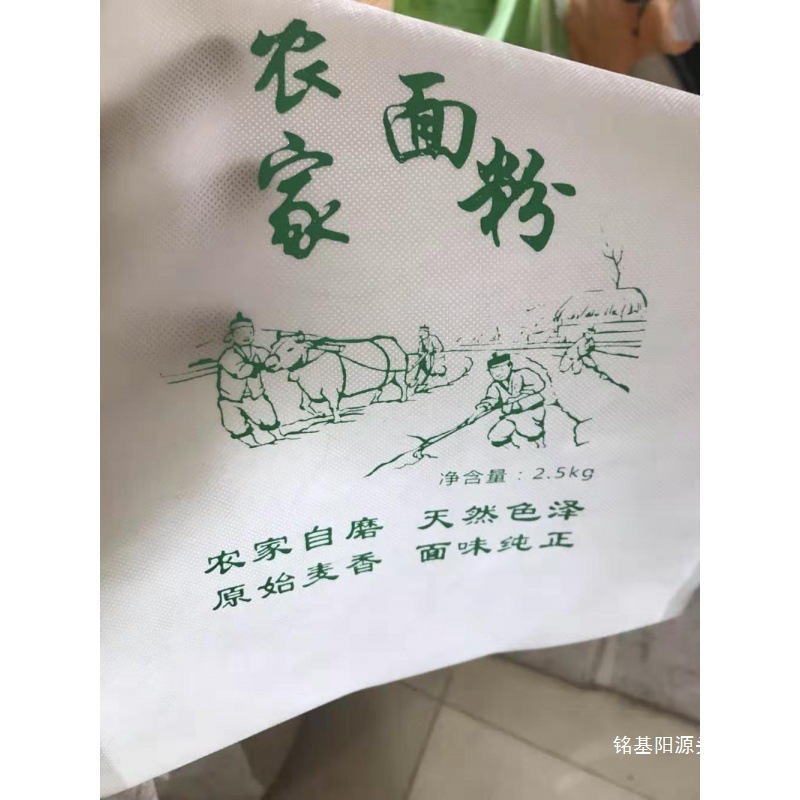 农家
面粉
净含量：2.5kg
农家自磨 天然色泽
原始麦香 面味纯正
铭基阳源